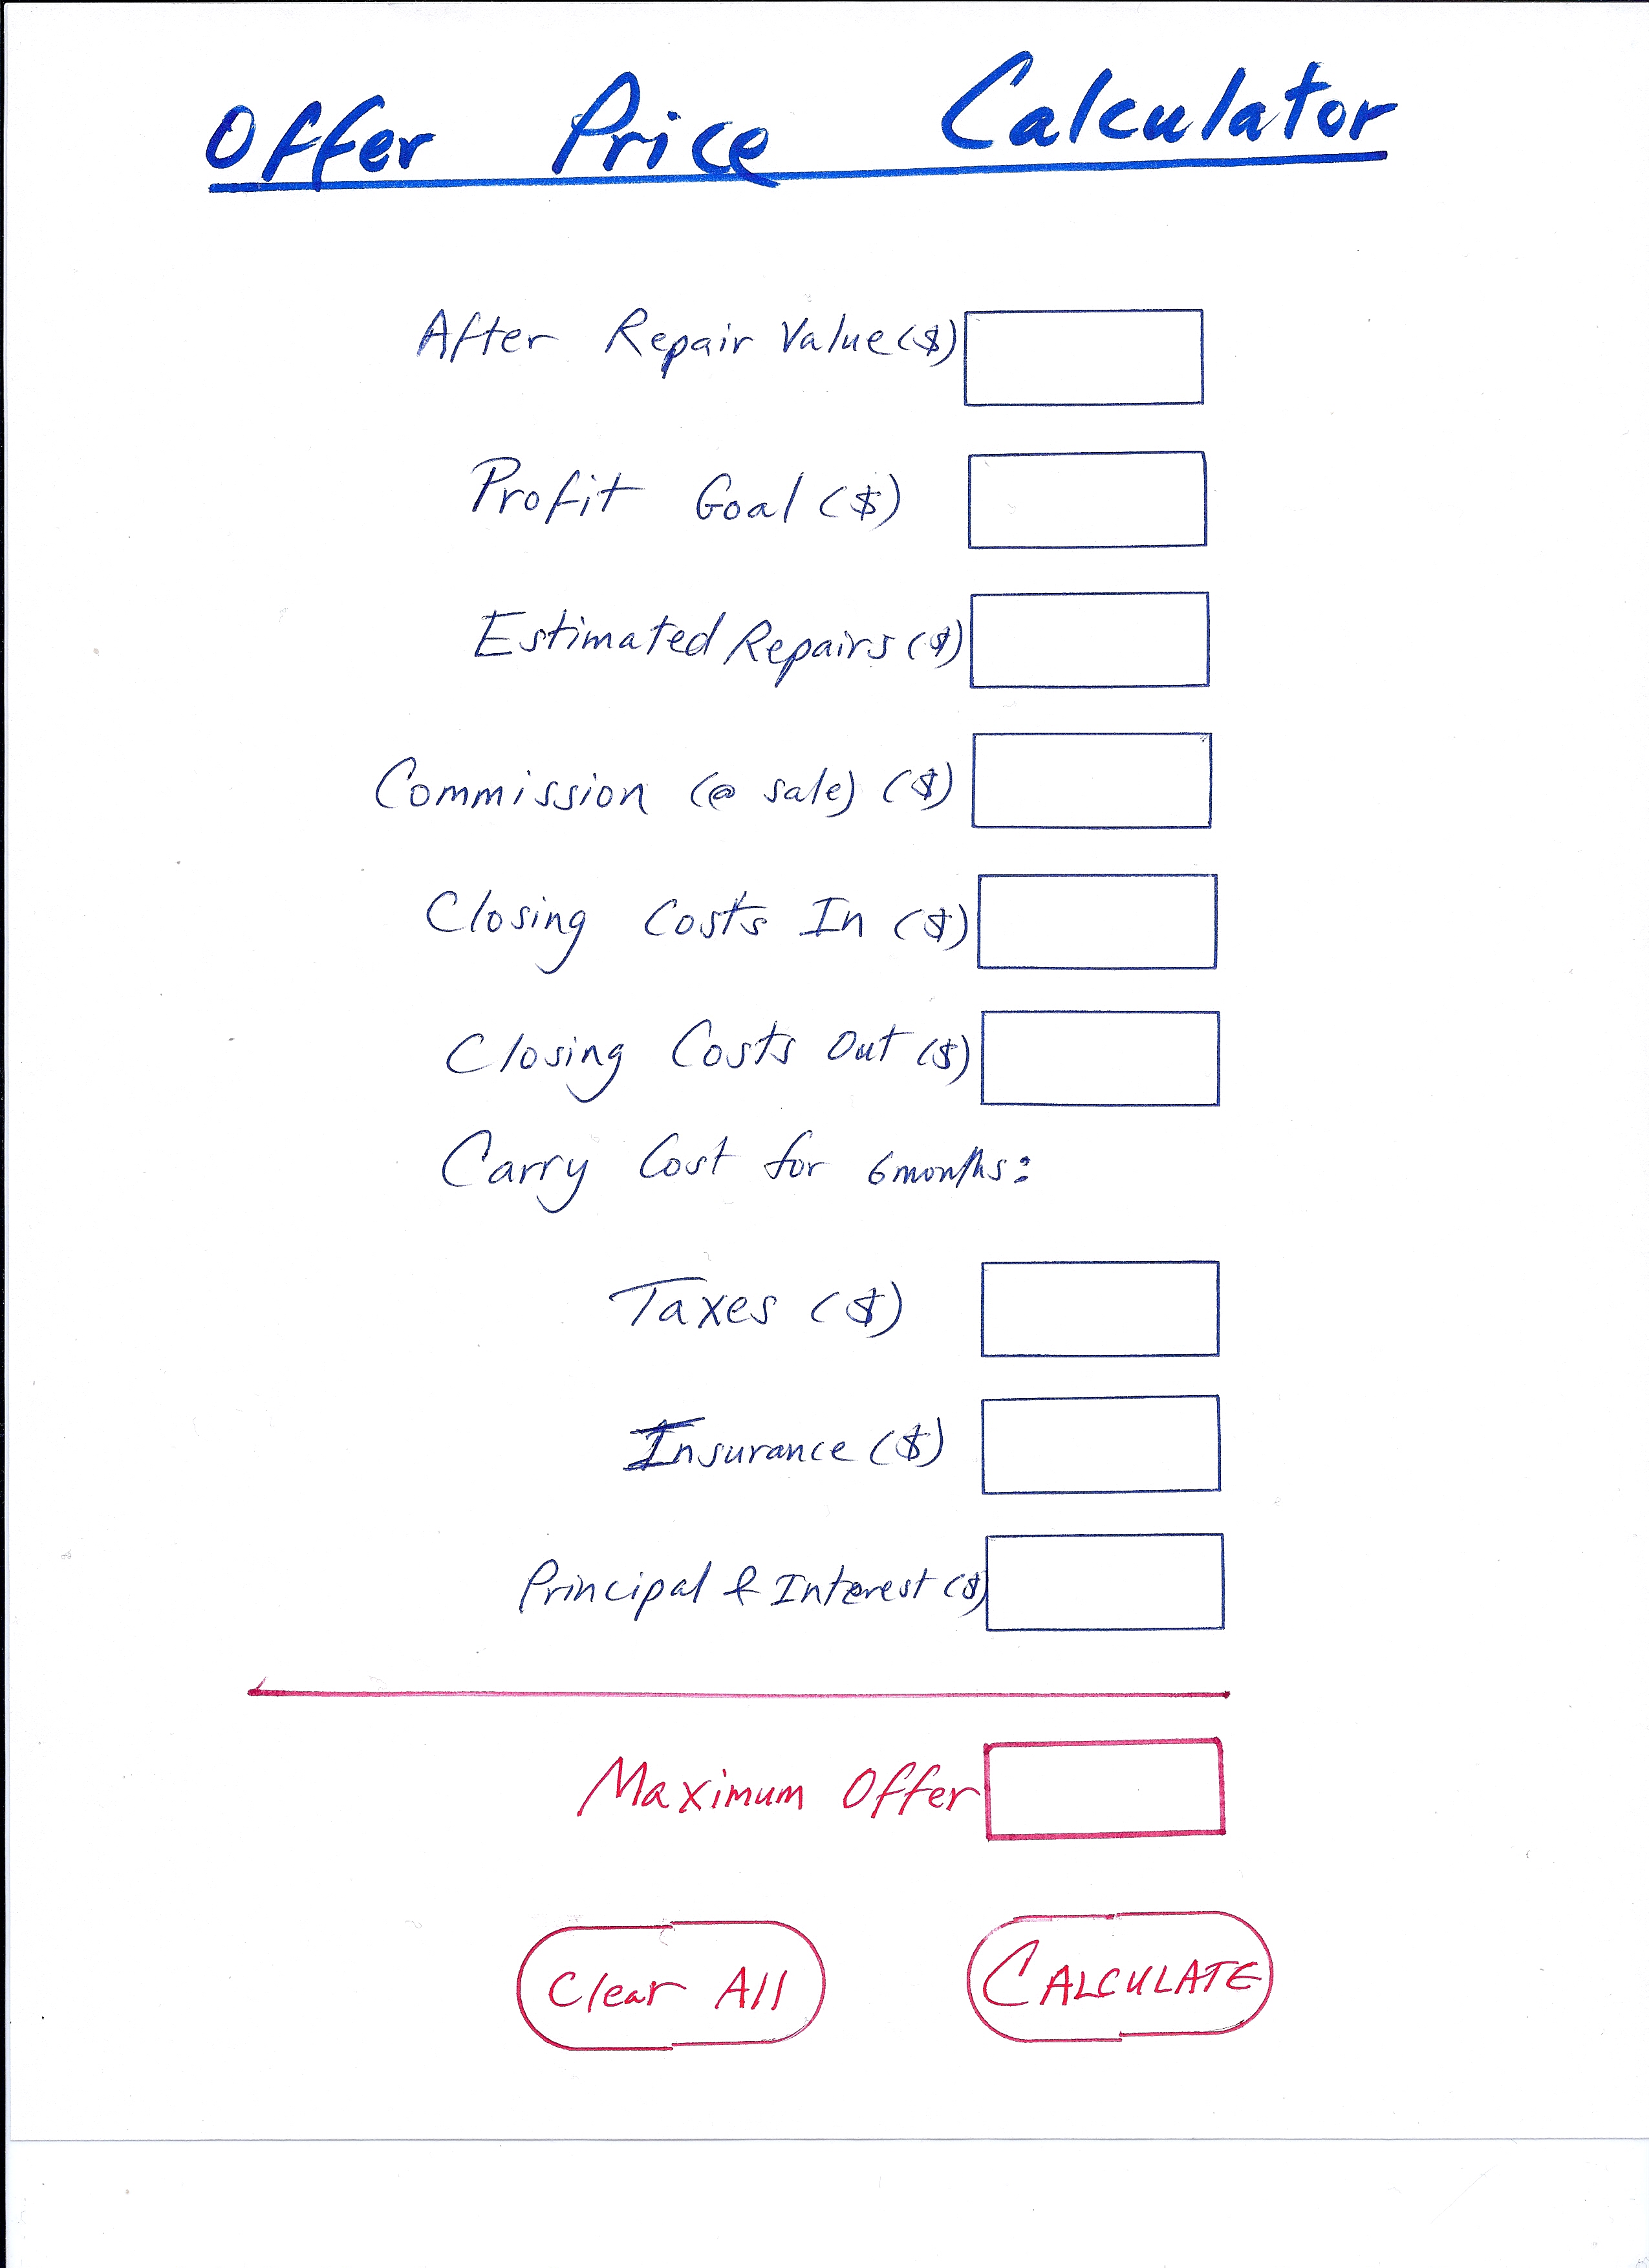 Offer Price Calculator
After Repair Value ($)
Profit Goal ($)
Estimated Repairs ($)
Commission (@ sale) ($)
Closing Costs In ($)
Closing Costs Out ($)
Carry Cost for 6 months:
Taxes ($)
Insurance ($)
Principal & Interest ($)
Maximum Offer
Clear All
CALCULATE